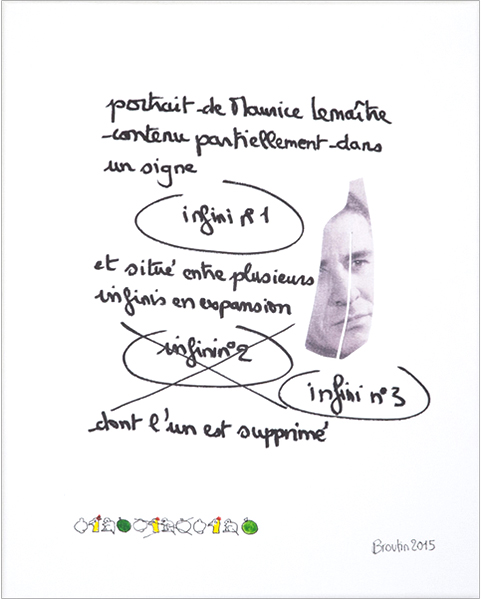 portrait de Maurice Lemaître
contenu partiellement dans
un signe
infini n°1
et situé entre plusieurs
infinis en expansion
infini n°2
infini n°3
dont l'un est supprimé
Broutin 2015